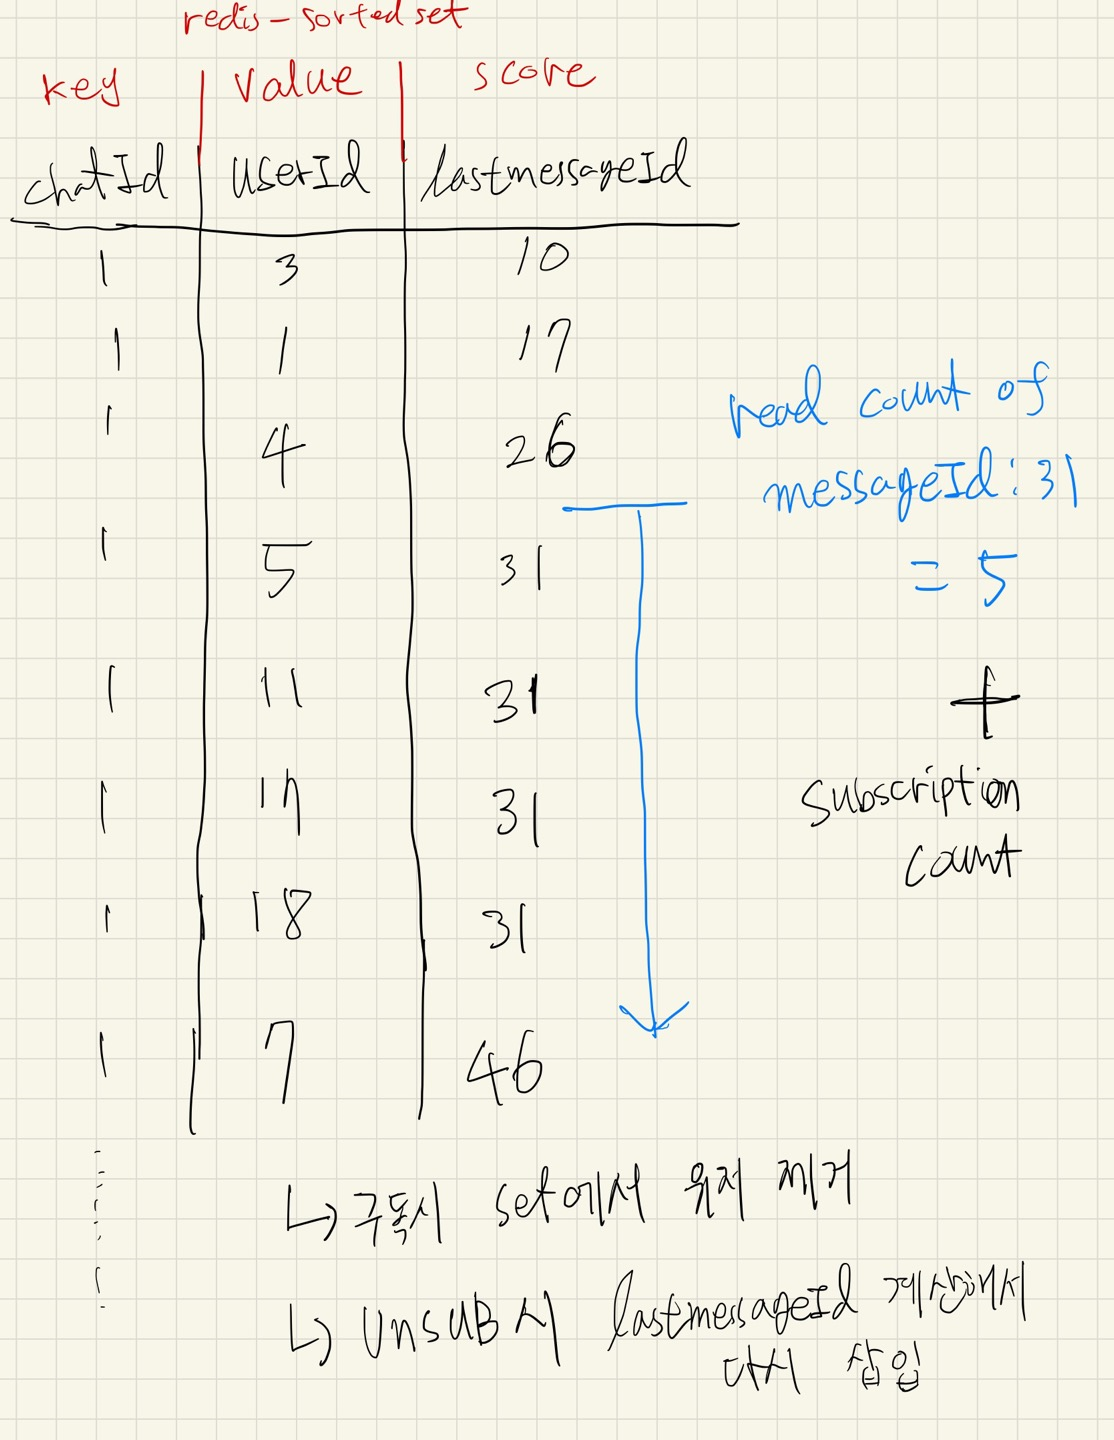 redis - sorted set
key value score
chatId userId lastmessageId
1 3 10
1 1 17
1 4 26
1 5 31
1 11 31
1 17 31
1 18 31
1 7 46
read count of
messageId: 31
= 5
+
subscription
count
↳ 구독시 set에서 유저 제거
↳ unsub시 lastmessageId 계산해서
다시 삽입